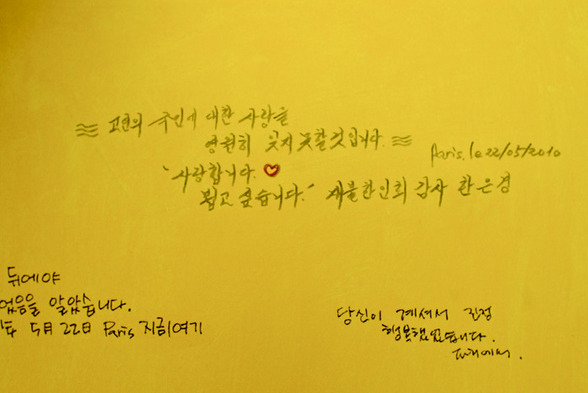 대한 사랑을
영원히 잊지 못할것입니다.
Paris, le 22/05/2010
"사랑합니다. ♡
뵙고 싶습니다." 재불한인회 감사 한은경
뒤에야
었음을 알았습니다.
5月 22日 Paris 지금여기
당신이 계셔서 진정
행복했었습니다.